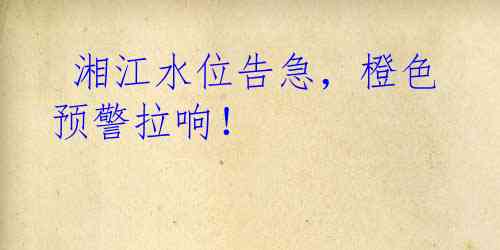 湘江水位告急，橙色
预警拉响！